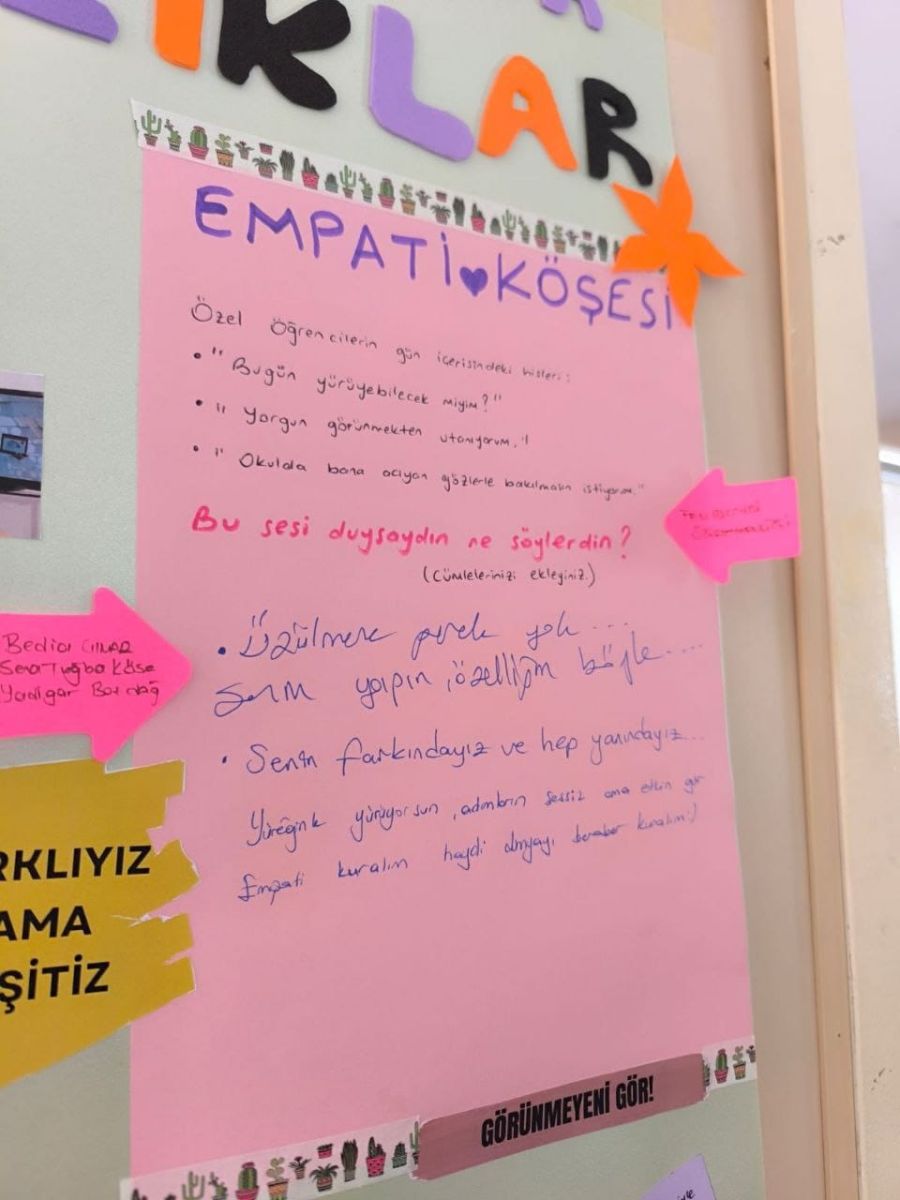 LIKLAR
EMPATİ♥KÖŞESİ
Özel Öğrencilerin gün içerisindeki hisleri:
• "Bugün yürüyebilecek miyim?"
• "Yorgun görünmekten utanıyorum."
• "Okulda bana acıyan gözlerle bakılmasın istiyorum."
Bu sesi duysaydın ne söylerdin?
(Cümlelerinizi ekleyiniz.)
Bedia ÇINAR
Sena Tuğba Köse
Yadigar
• Üzülmene gerek yok...
Senin yapın, özelliğin böyle....
• Senin farkındayız ve hep yanındayız...
Yüreğinle yürüyorsun, adımların sessiz ama
Empati kuralım haydi dünyayı beraber kuralım:)
RKLIYIZ
AMA
ŞİTİZ
GÖRÜNMEYENİ GÖR!